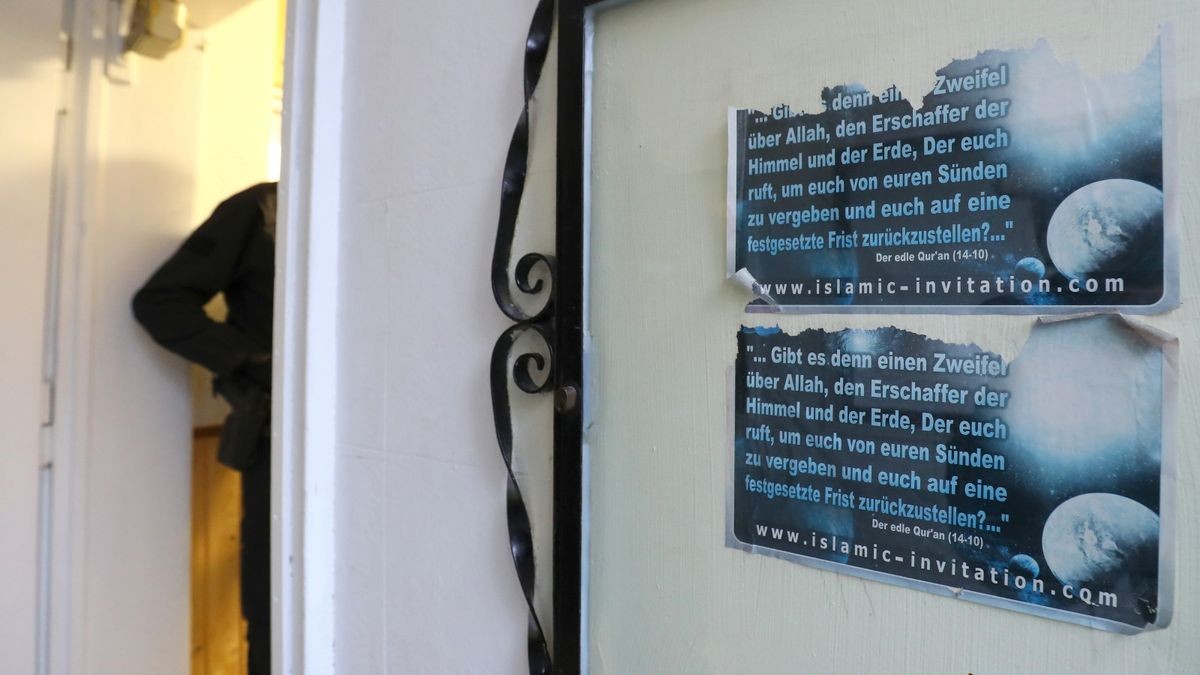 "... Gibt es denn ein Zweifel
über Allah, den Erschaffer der
Himmel und der Erde, Der euch
ruft, um euch von euren Sünden
zu vergeben und euch auf eine
festgesetzte Frist zurückzustellen?..."
Der edle Qur'an (14-10)
www.islamic-invitation.com
"... Gibt es denn einen Zweifel
über Allah, den Erschaffer der
Himmel und der Erde, Der euch
ruft, um euch von euren Sünden
zu vergeben und euch auf eine
festgesetzte Frist zurückzustellen?..."
Der edle Qur'an (14-10)
www.islamic-invitation.com